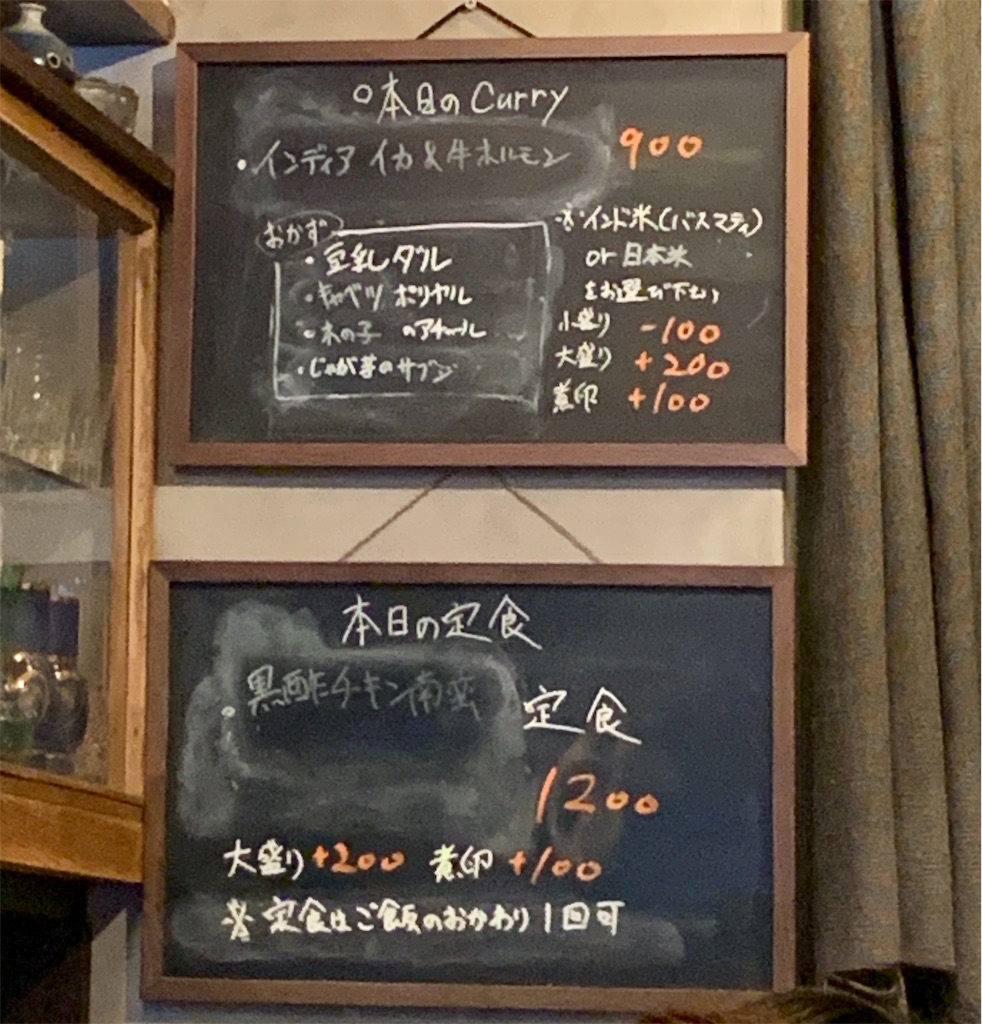 ○本日のCurry
・インディア イカ&牛ホルモン 900
おかず
・豆乳ダル
・キャベツ ポリヤル
・木の子 のアチャール
・じゃが芋のサブジ
※インド米(バスマティ)
or 日本米
をお選び下さい
小盛り -100
大盛り +200
煮卵 +100
本日の定食
・黒酢チキン南蛮 定食
1200
大盛り +200 煮卵 +100
※定食はご飯のおかわり1回可